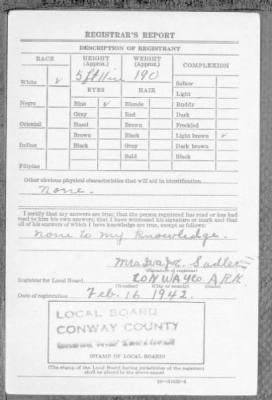 REGISTRAR'S REPORT
DESCRIPTION OF REGISTRANT
RACE HEIGHT (Approx.) WEIGHT (Approx.) COMPLEXION
White ✓ 5 ft 11 in 190 Sallow
EYES HAIR Light
Negro Blue ✓ Blonde Ruddy
Gray Red Dark
Oriental Hazel Brown Freckled
Brown Black Light brown ✓
Indian Black Gray Dark brown
Bald Black
Filipino
Other obvious physical characteristics that will aid in identification
None.
I certify that my answers are true; that the person registered has read or has had
read to him his own answers; that I have witnessed his signature or mark and that
all of his answers of which I have knowledge are true, except as follows:
None to my Knowledge.
Mrs Sadler
(Signature of registrar)
Registrar for Local Board CONWAY CO ARK.
(Number) (City or county)
Date of registration Feb. 16 1942.
LOCAL BOARD
CONWAY COUNTY
(STAMP OF LOCAL BOARD)
(The stamp of the Local Board having jurisdiction of the registrant
shall be placed in the above space)